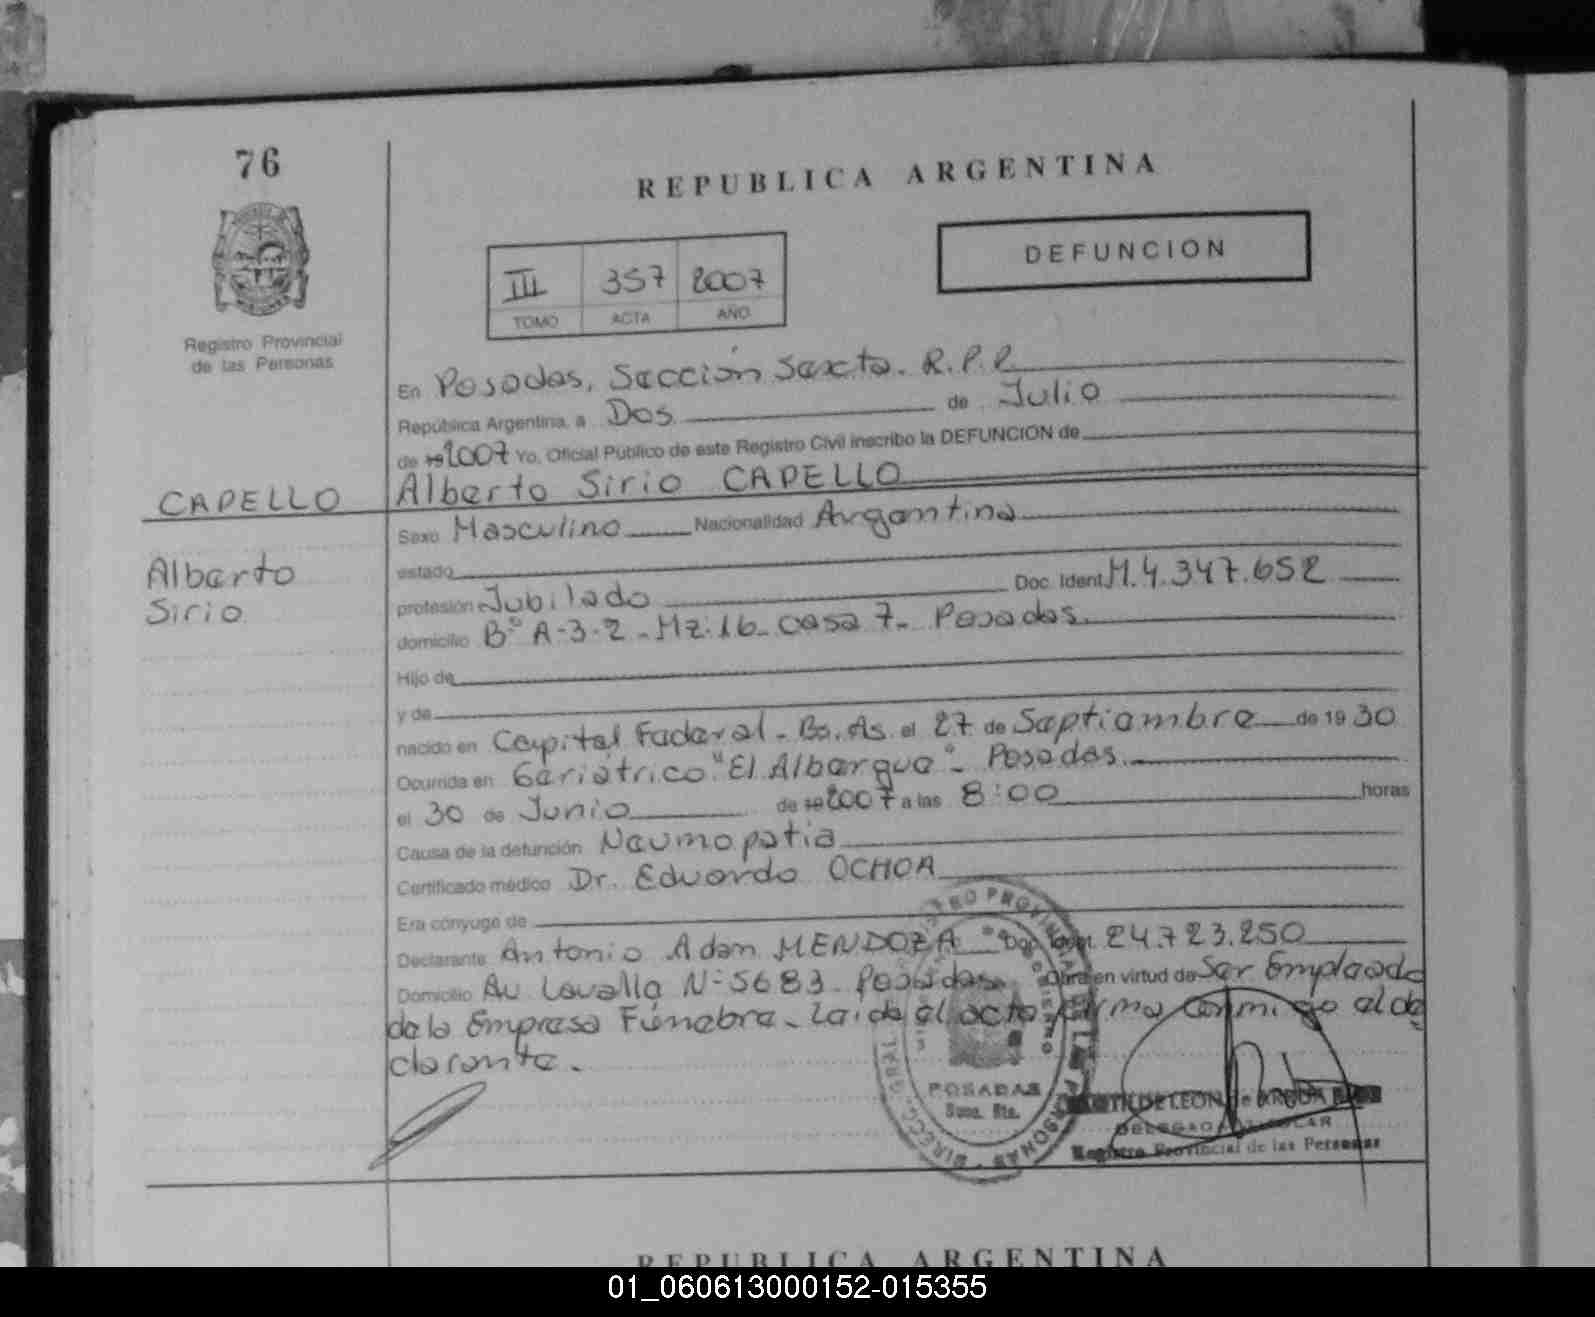 76
REPUBLICA ARGENTINA
DEFUNCION
III 357 2007
TOMO ACTA AÑO
Registro Provincial
de las Personas
En Posadas, Sección Sexta. R.P.P.
República Argentina, a Dos de Julio
de 19 2007 Yo, Oficial Público de este Registro Civil inscribo la DEFUNCION de
CAPELLO
Alberto Sirio CAPELLO
Sexo Masculino Nacionalidad Argentina
Alberto
Sirio
estado
profesión Jubilado Doc. Ident. M.4.347.652
domicilio Bº A-3-2 - Mz.16 - casa 7 - Posadas
Hijo de
y de
nacido en Capital Federal - Bs. As. el 27 de Septiembre de 19 30
Ocurrida en Geriátrico "El Albergue" - Posadas
el 30 de Junio de 19 2007 a las 8:00 horas
Causa de la defunción Neumopatia
Certificado médico Dr. Eduardo OCHOA
Era cónyuge de
Declarante Antonio Adan MENDOZA Doc. Ident. 24.723.250
Domicilio Av Lavalle N-5683 - Posadas Obra en virtud de Ser Empleado
de la Empresa Fúnebre - Leida el acta firma conmigo el de
clarante.
POSADAS
DE LEON de
Registro Provincial de las Personas
REPUBLICA ARGENTINA
01_060613000152-015355